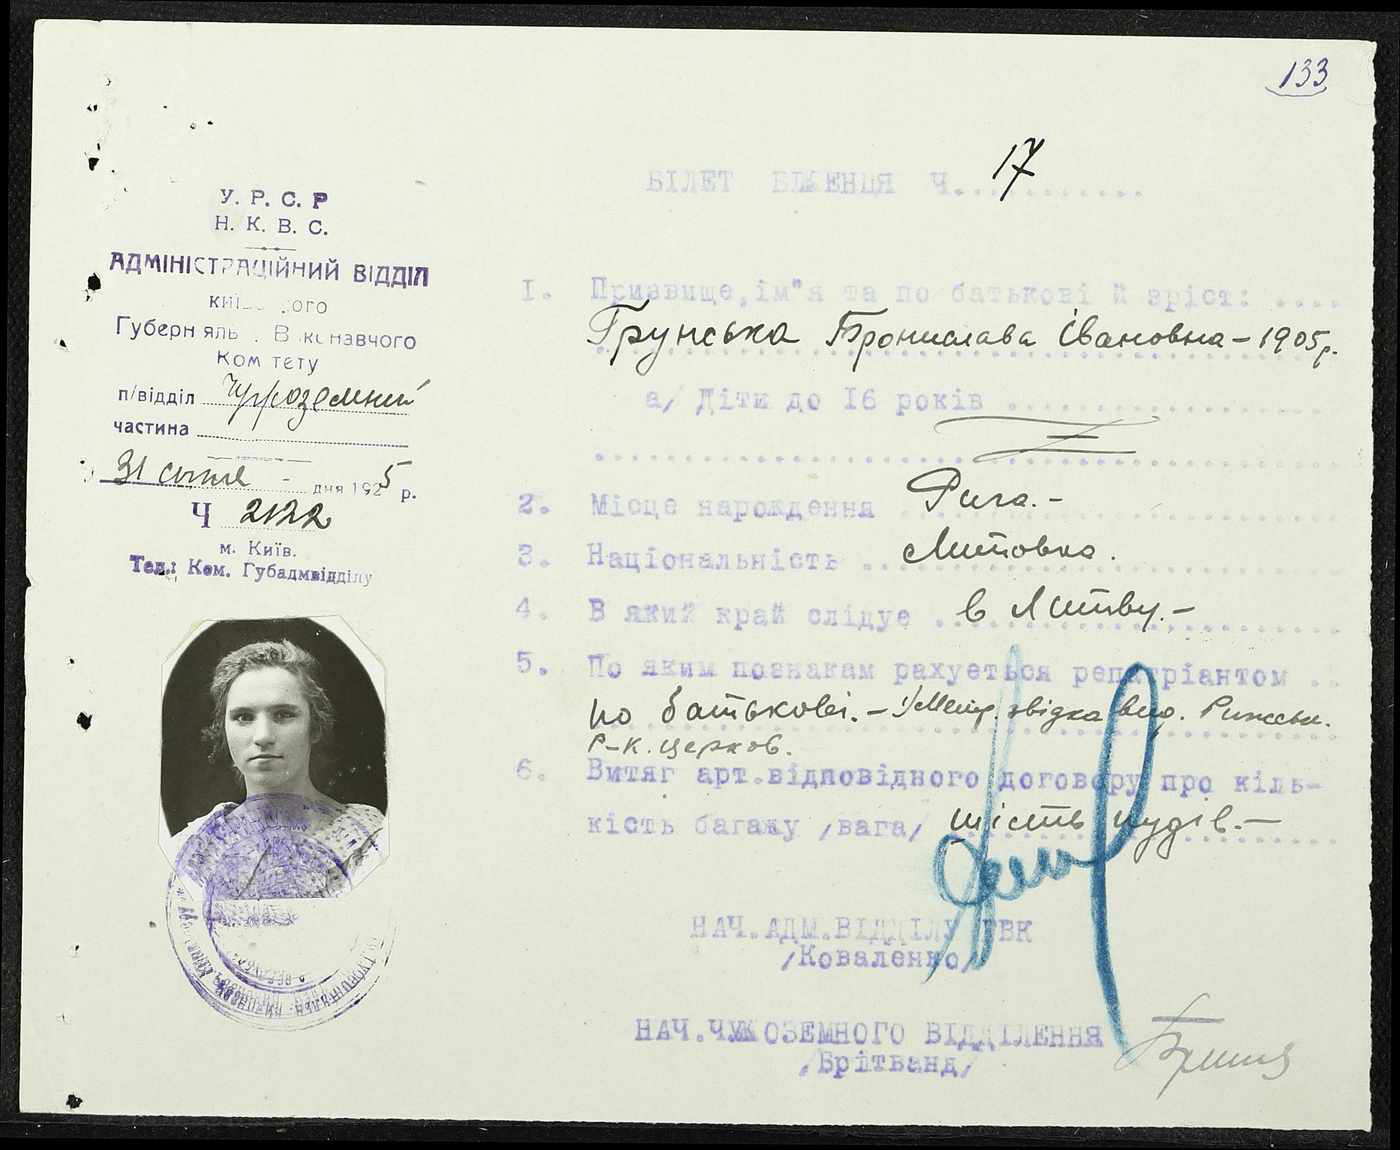 133
У. Р. С. Р
Н. К. В. С.
АДМІНІСТРАЦІЙНИЙ ВІДДІЛ
Губерн яль В к навчого
Ком тету
п/відділ Чужоземний
частина
31 січня - дня 1925 р.
Ч 2122
м. Київ.
Тел.: Ком. Губадмвідділу
БІЛЕТ БІЖЕНЦЯ Ч. 17
1. Призвище, ім"я та по батькові й зріст:
Грунська Броніслава Івановна - 1905 р.
а/ Діти до 16 років
2. Місце народження Рига. -
3. Національність Литовка.
4. В який край слідує в Литву. -
5. По яким познакам рахується репатріантом
по батькові. - звідка вид. Рижськ.
Р-К. церков.
6. Витяг арт. відповідного договору про кіль-
кість багажу /вага/ шість пудів. -
НАЧ. АДМ. ВІДДІЛУ ГВК
/Коваленко/
НАЧ. ЧУЖОЗЕМНОГО ВІДДІЛЕННЯ
/Брітванд/